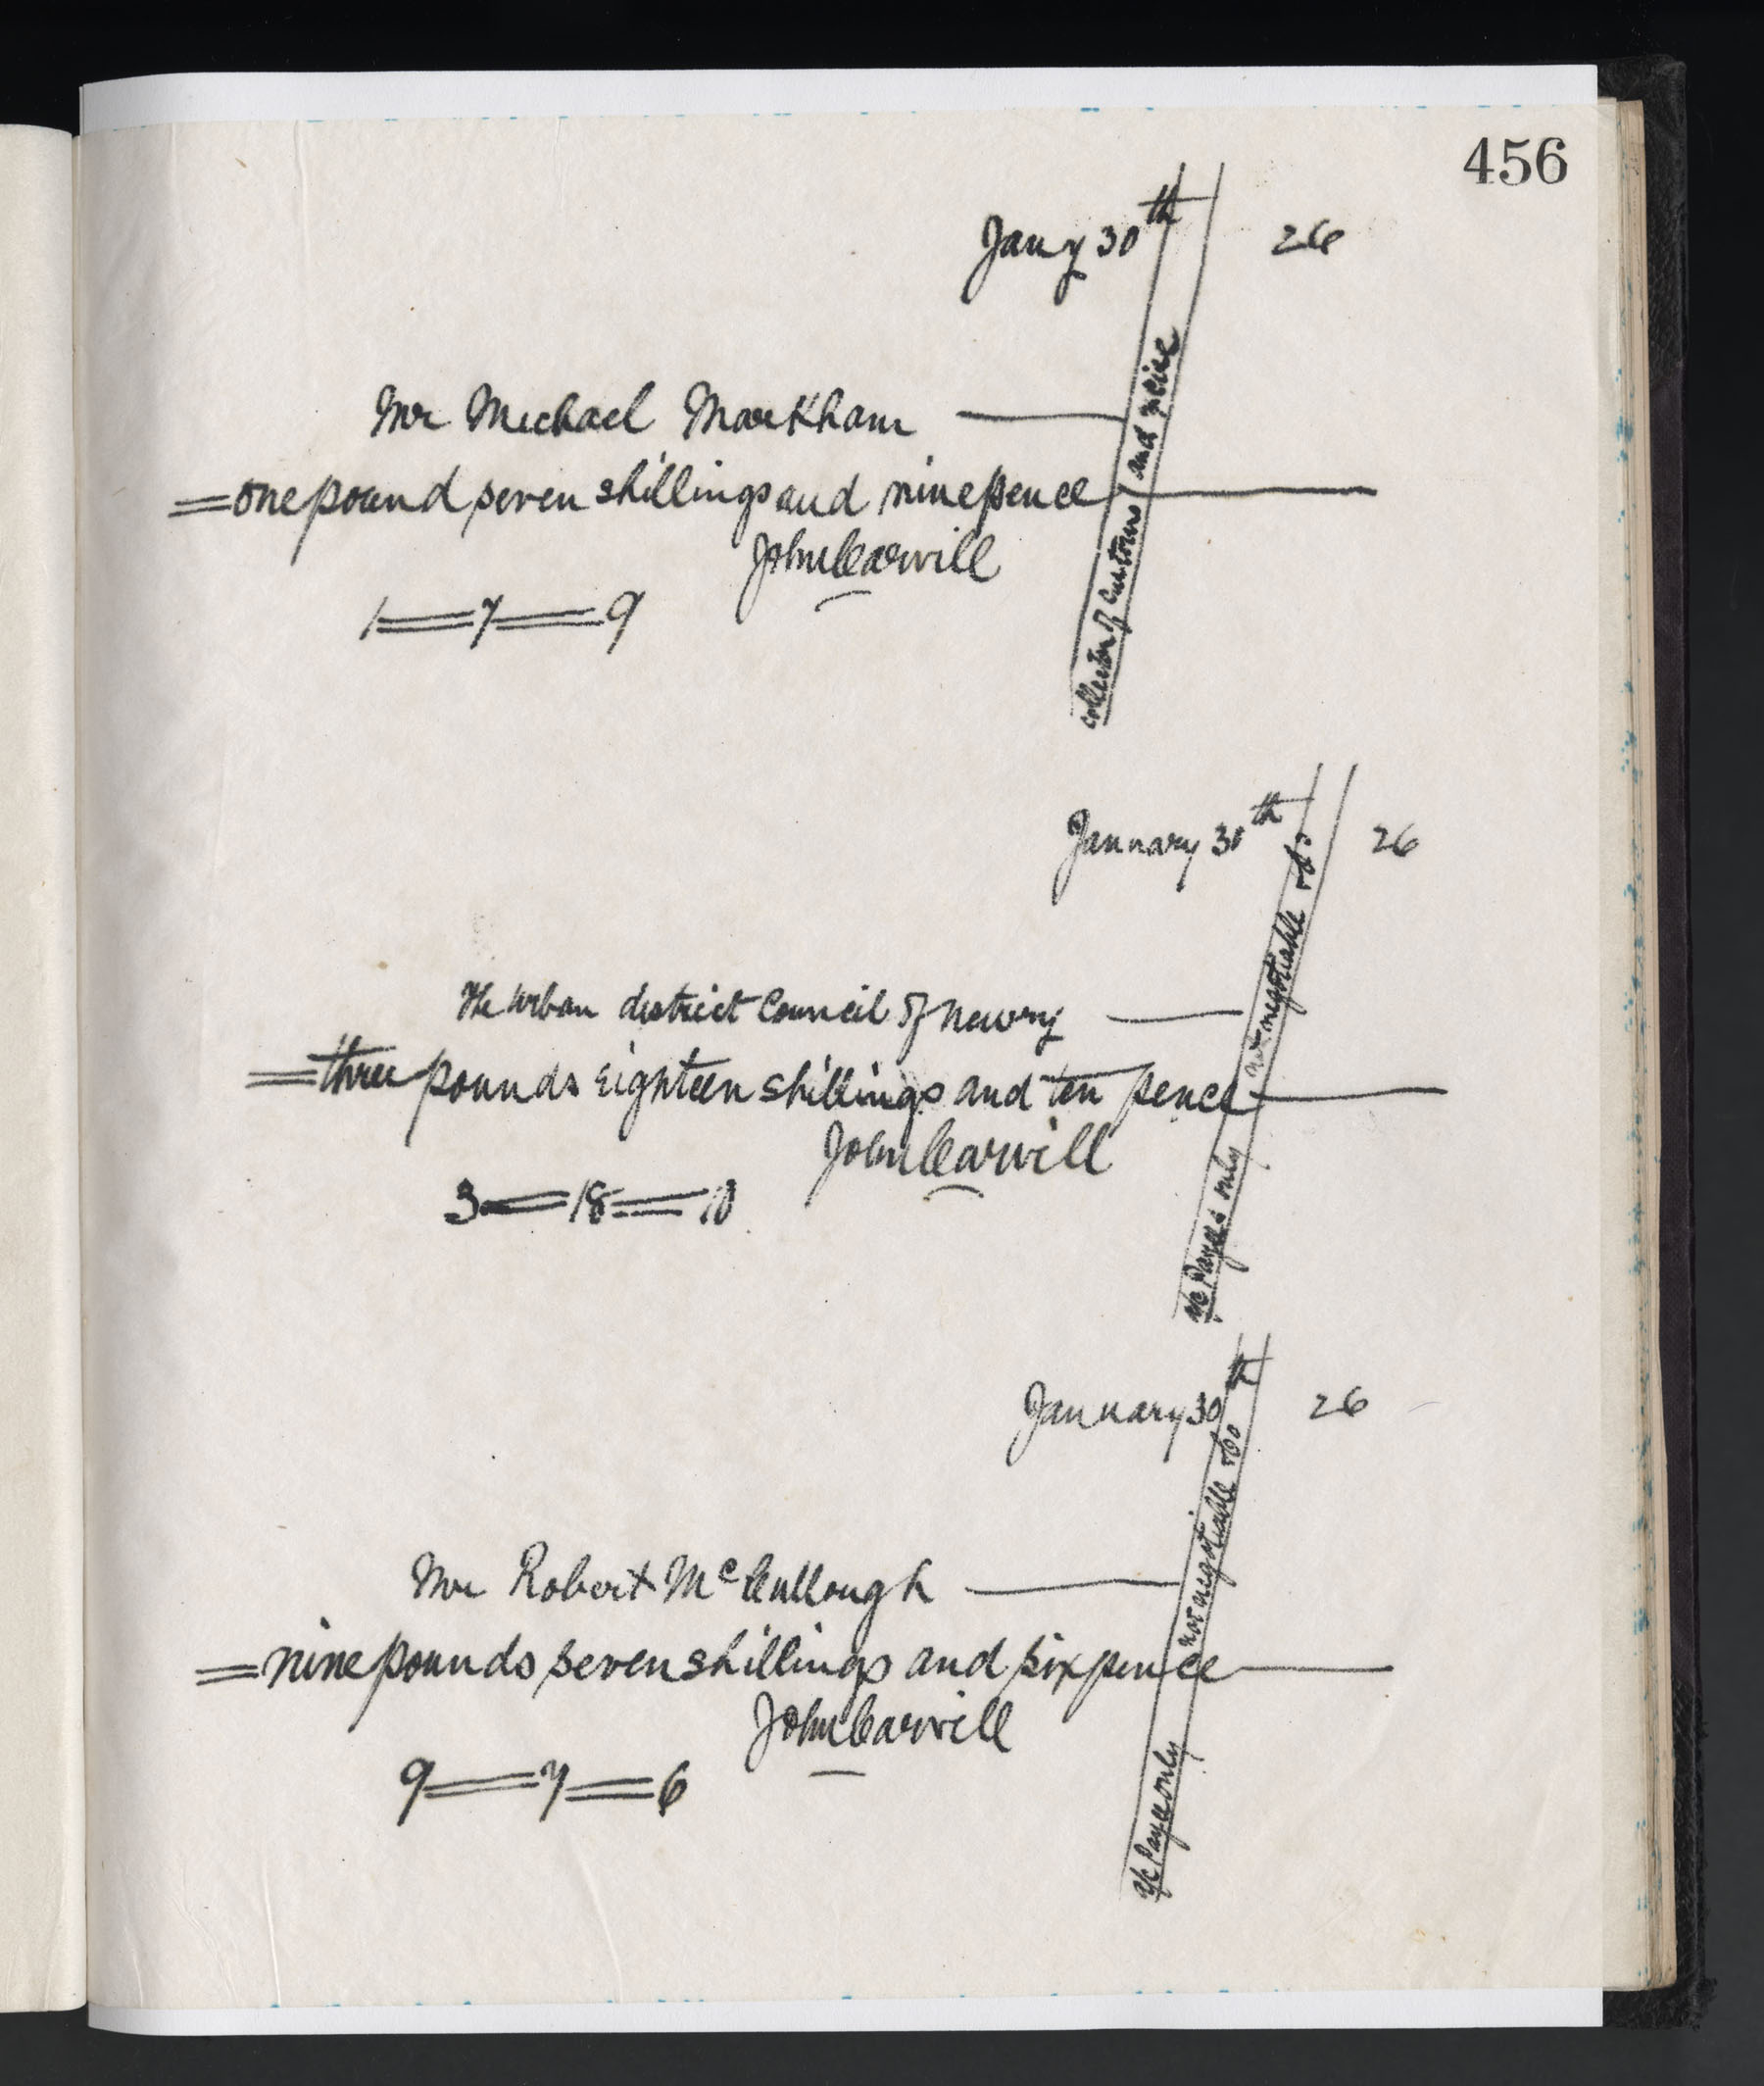 456
Jany 30th 26
Mr Michael Markham
= one pound seven shillings and nine pence
John Carvill
1 = 7 = 9
Collector of Customs and
January 30th 26
The Urban district Council of Newry
= three pounds Eighteen shillings and ten pence
John Carvill
3 = 18 = 10
a/c Payees only not negotiable
January 30th 26
Mr Robert McCullough
= nine pounds seven shillings and six pence
John Carvill
9 = 7 = 6
a/c Payee only not negotiable